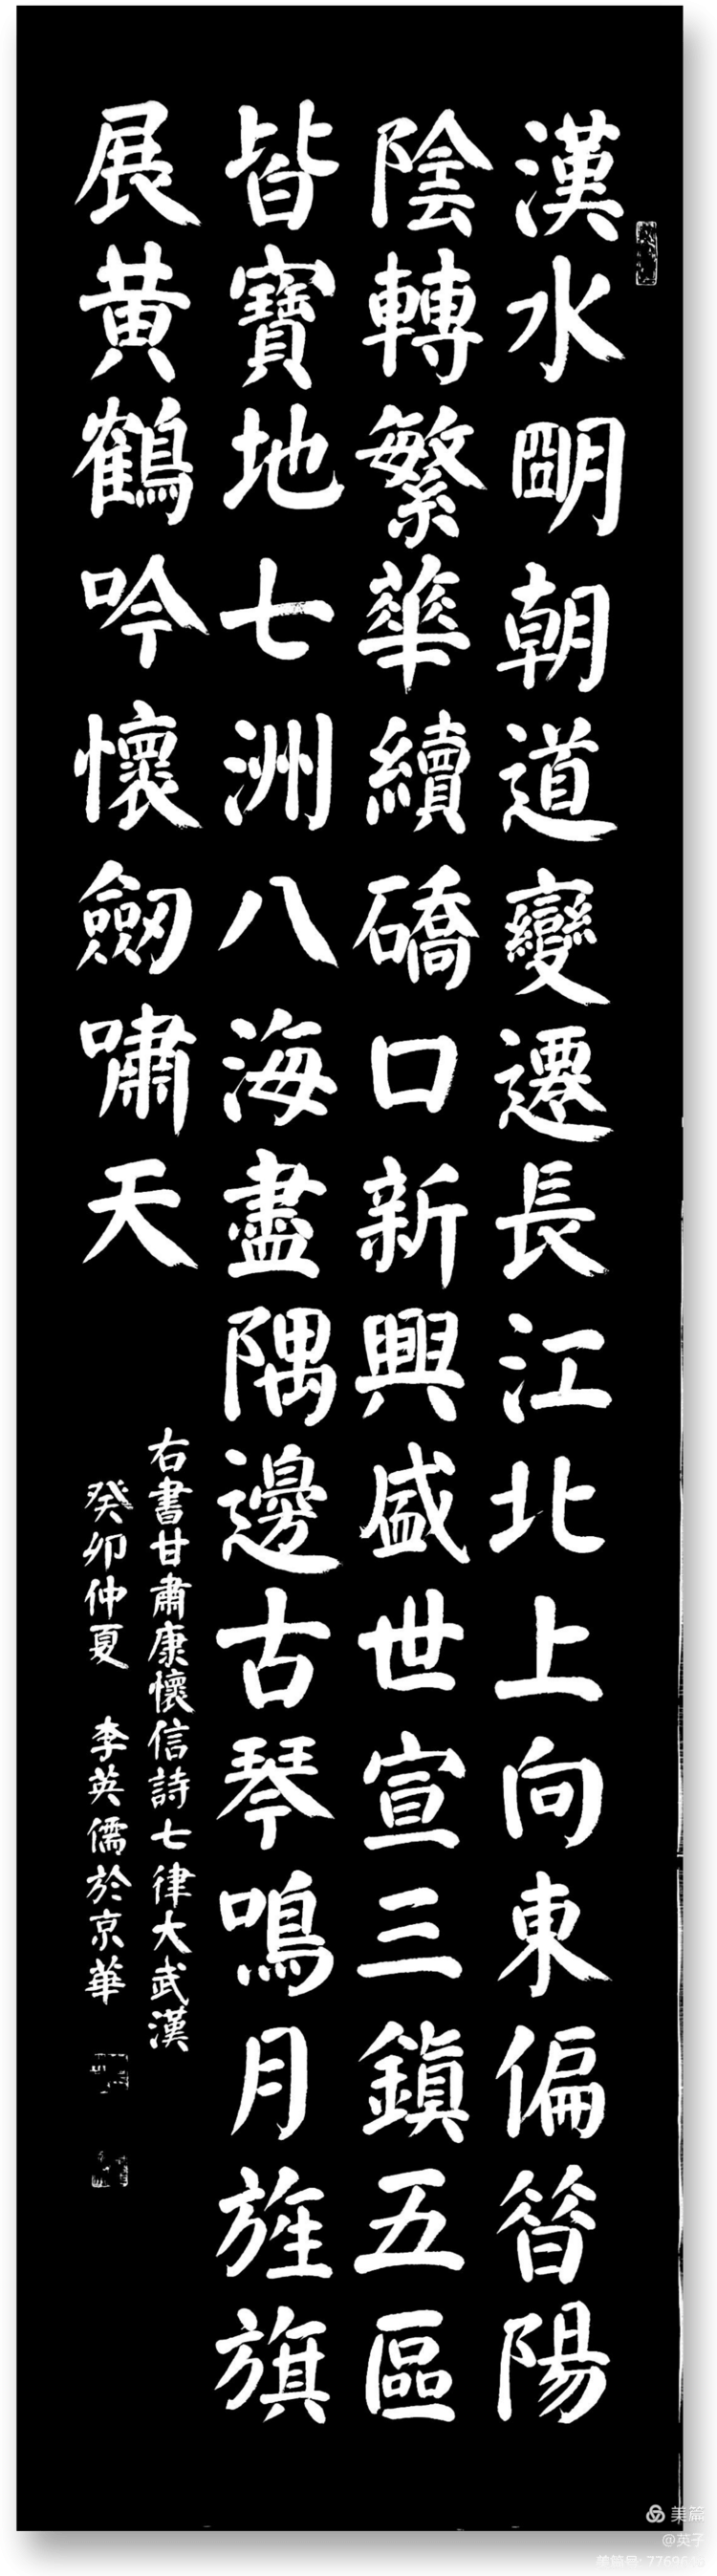 漢水朙朝道變遷長江北上向東偏簮陽
陰轉繁華續礄口新興盛世宣三鎮五區
皆寶地七洲八海盡隅邊古琴鳴月旌旗
展黄鶴吟懷劔嘯天
右書甘肅康懷信詩七律大武漢
癸卯仲夏 李英儒於京華
美篇
@英子